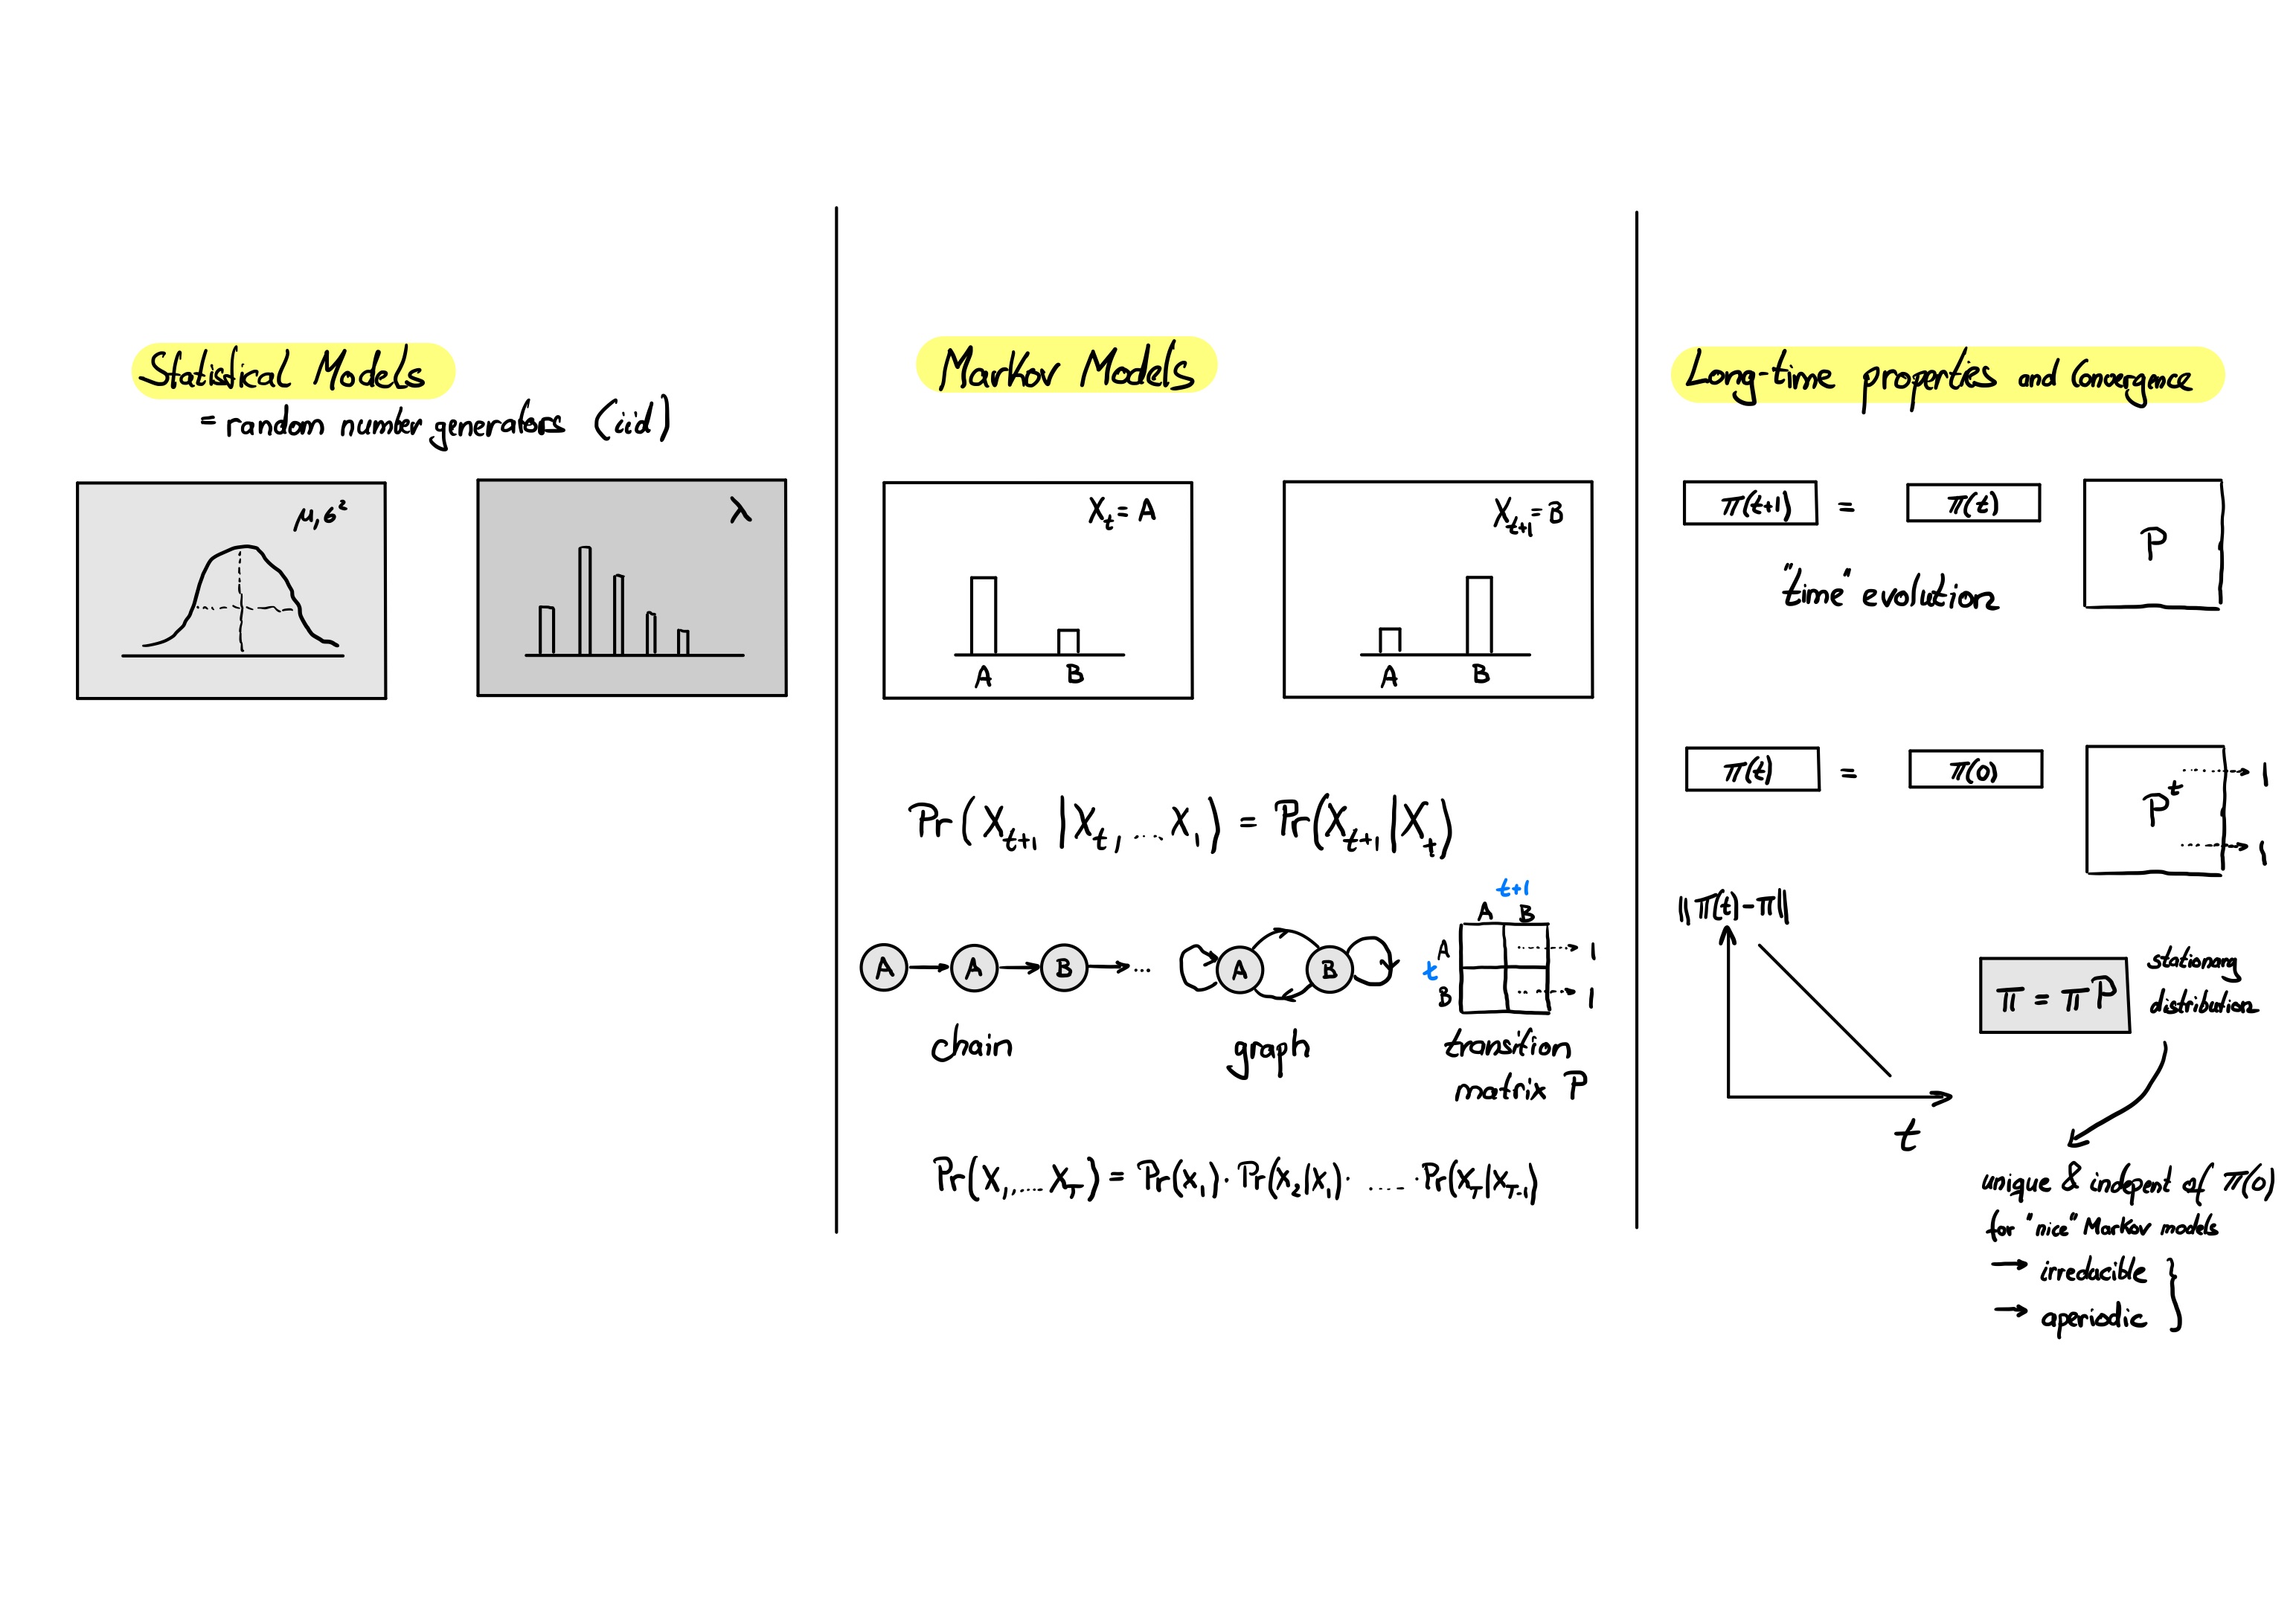 Statistical Models
= random number generators (iid)
μ, σ²
λ
Markov Models
X_t = A
A B
X_{t+1} = B
A B
Pr(X_{t+1} | X_t, .... X_1) = Pr(X_{t+1} | X_t)
A → A → B → ...
chain
A B
graph
t+1
A B
A → 1
t
B → 1
transition
matrix P
Pr(X_1, .... X_T) = Pr(X_1) · Pr(X_2|X_1) · .... · Pr(X_T|X_{T-1})
Long-time properties and Convergence
π(t+1) = π(t) P
"time" evolution
π(t) = π(0) P^t → 1
→ 1
||π(t) - π||
t
π = π P
stationary
distribution
unique & indepent of π(0)
for "nice" Markov models
→ irreducible
→ aperiodic }